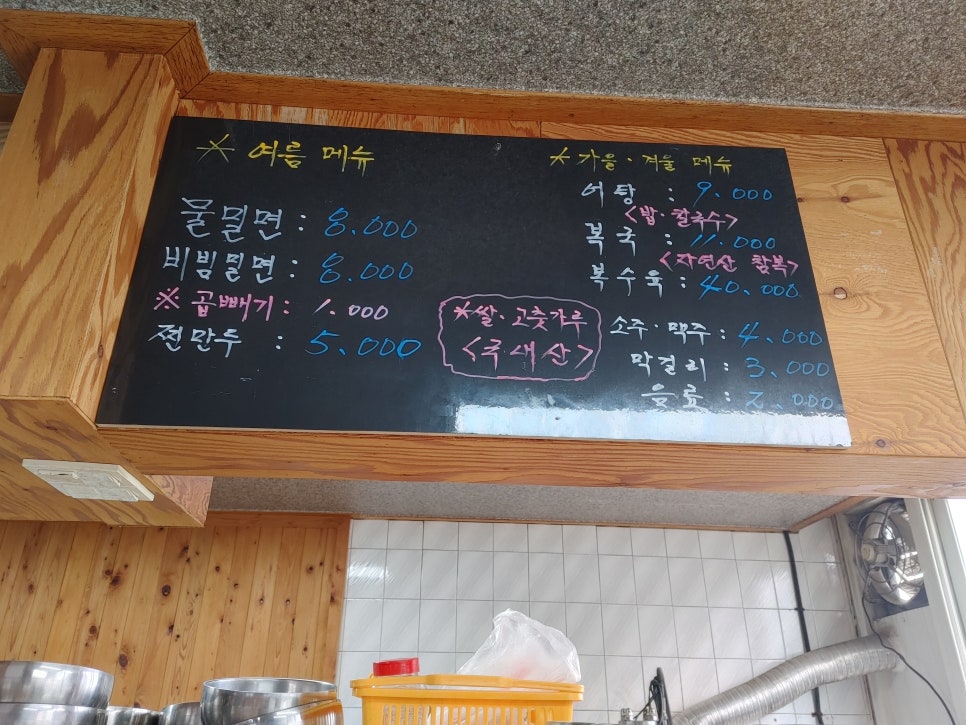 ※ 여름 메뉴
물밀면 : 8.000
비빔밀면 : 8.000
※ 곱빼기 : 1.000
찐만두 : 5.000
*쌀·고춧가루
<국내산>
* 가을·겨울 메뉴
어탕 : 9.000
<밥·칼국수>
복국 : 11.000
<자연산 참복>
복수육 : 40.000
소주·맥주 : 4.000
막걸리 : 3.000
음료 : 2.000